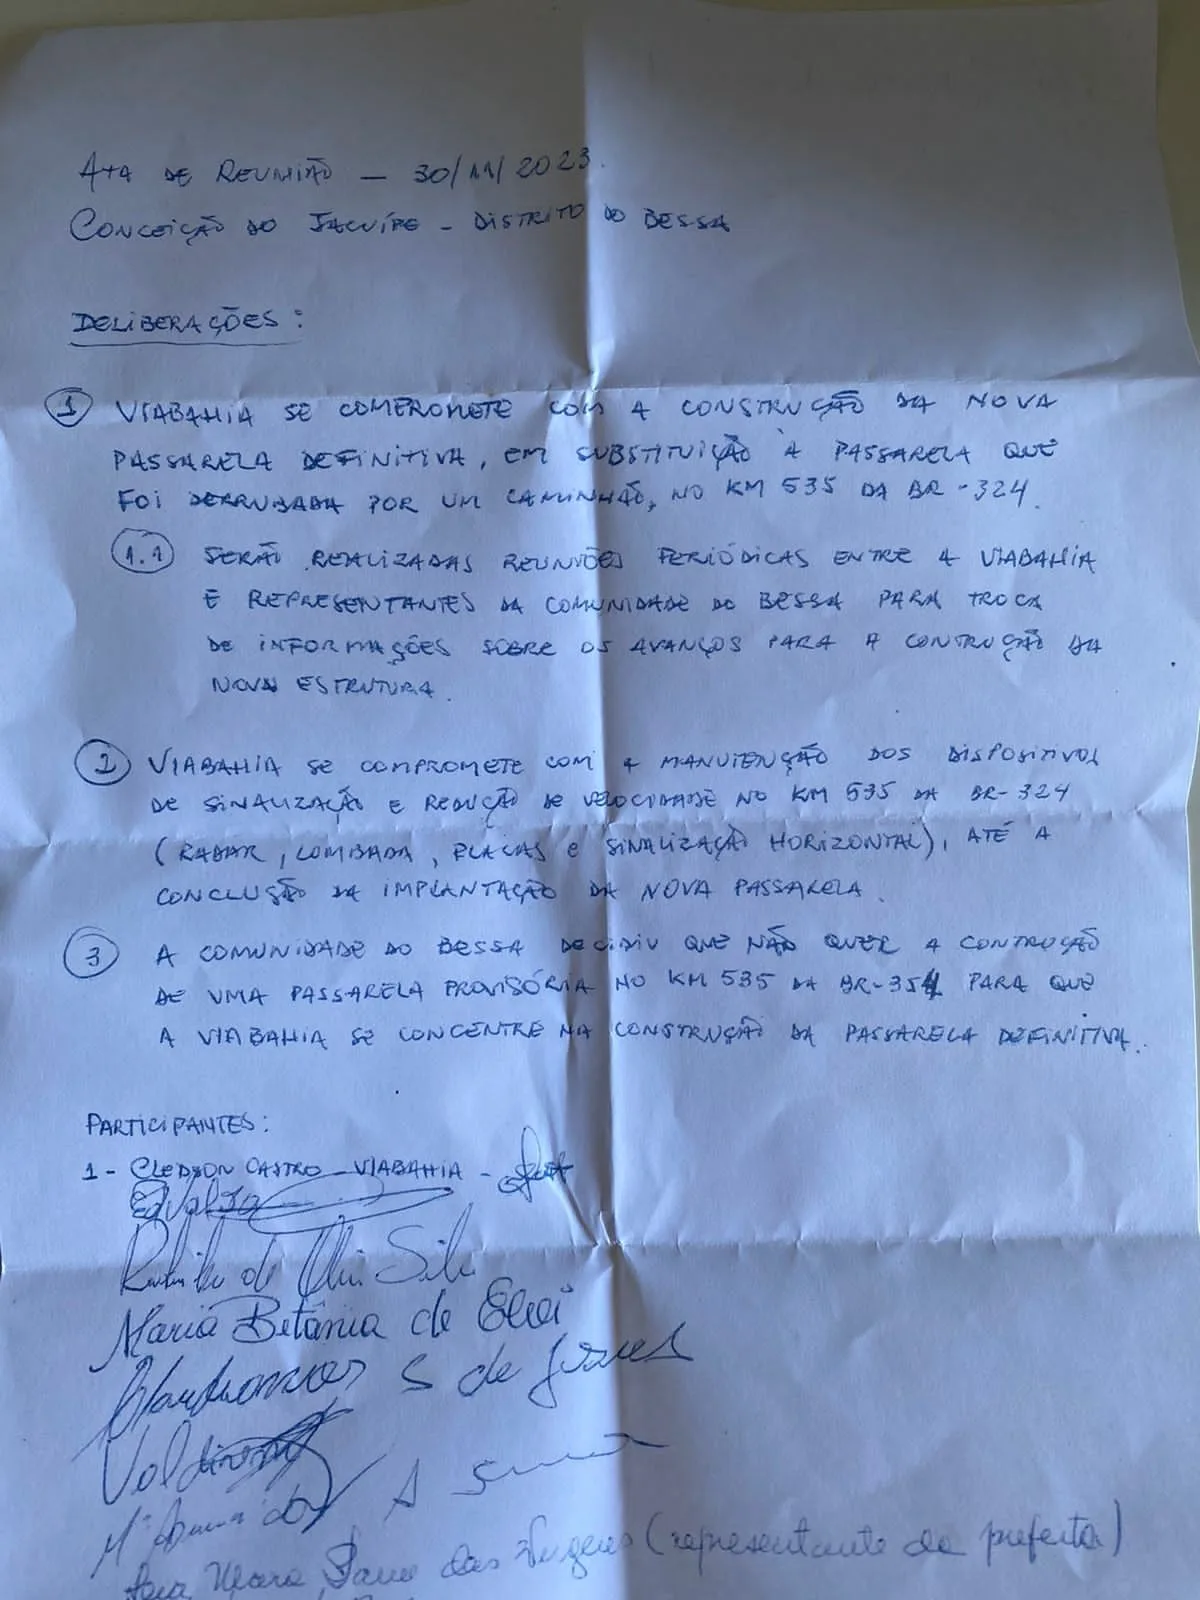 ATA DE REUNIÃO - 30/11/2023.
CONCEIÇÃO DO JACUÍPE - DISTRITO DO BESSA
DELIBERAÇÕES:
1 VIABAHIA SE COMPROMETE COM A CONSTRUÇÃO DA NOVA
PASSARELA DEFINITIVA, EM SUBSTITUIÇÃO À PASSARELA QUE
FOI DERRUBADA POR UM CAMINHÃO, NO KM 535 DA BR-324.
1.1 SERÃO REALIZADAS REUNIÕES PERIÓDICAS ENTRE A VIABAHIA
E REPRESENTANTES DA COMUNIDADE DO BESSA PARA TROCA
DE INFORMAÇÕES SOBRE OS AVANÇOS PARA A CONTRUÇÃO DA
NOVA ESTRUTURA.
2 VIABAHIA SE COMPROMETE COM A MANUTENÇÃO DOS DISPOSITIVOS
DE SINALIZAÇÃO E REDUÇÃO DE VELOCIDADE NO KM 535 DA BR-324
(RADAR, LOMBADA, PLACAS E SINALIZAÇÃO HORIZONTAL), ATÉ A
CONCLUSÃO DA IMPLANTAÇÃO DA NOVA PASSARELA.
3 A COMUNIDADE DO BESSA DECIDIU QUE NÃO QUER A CONTRUÇÃO
DE UMA PASSARELA PROVISÓRIA NO KM 535 DA BR-354 PARA QUE
A VIABAHIA SE CONCENTRE NA CONSTRUÇÃO DA PASSARELA DEFINITIVA.
PARTICIPANTES:
1- CLEDSON CASTRO - VIABAHIA -
de Silva
Maria Betânia de
S de Jesus
Ana Mara das Virgens (representante da prefeita)